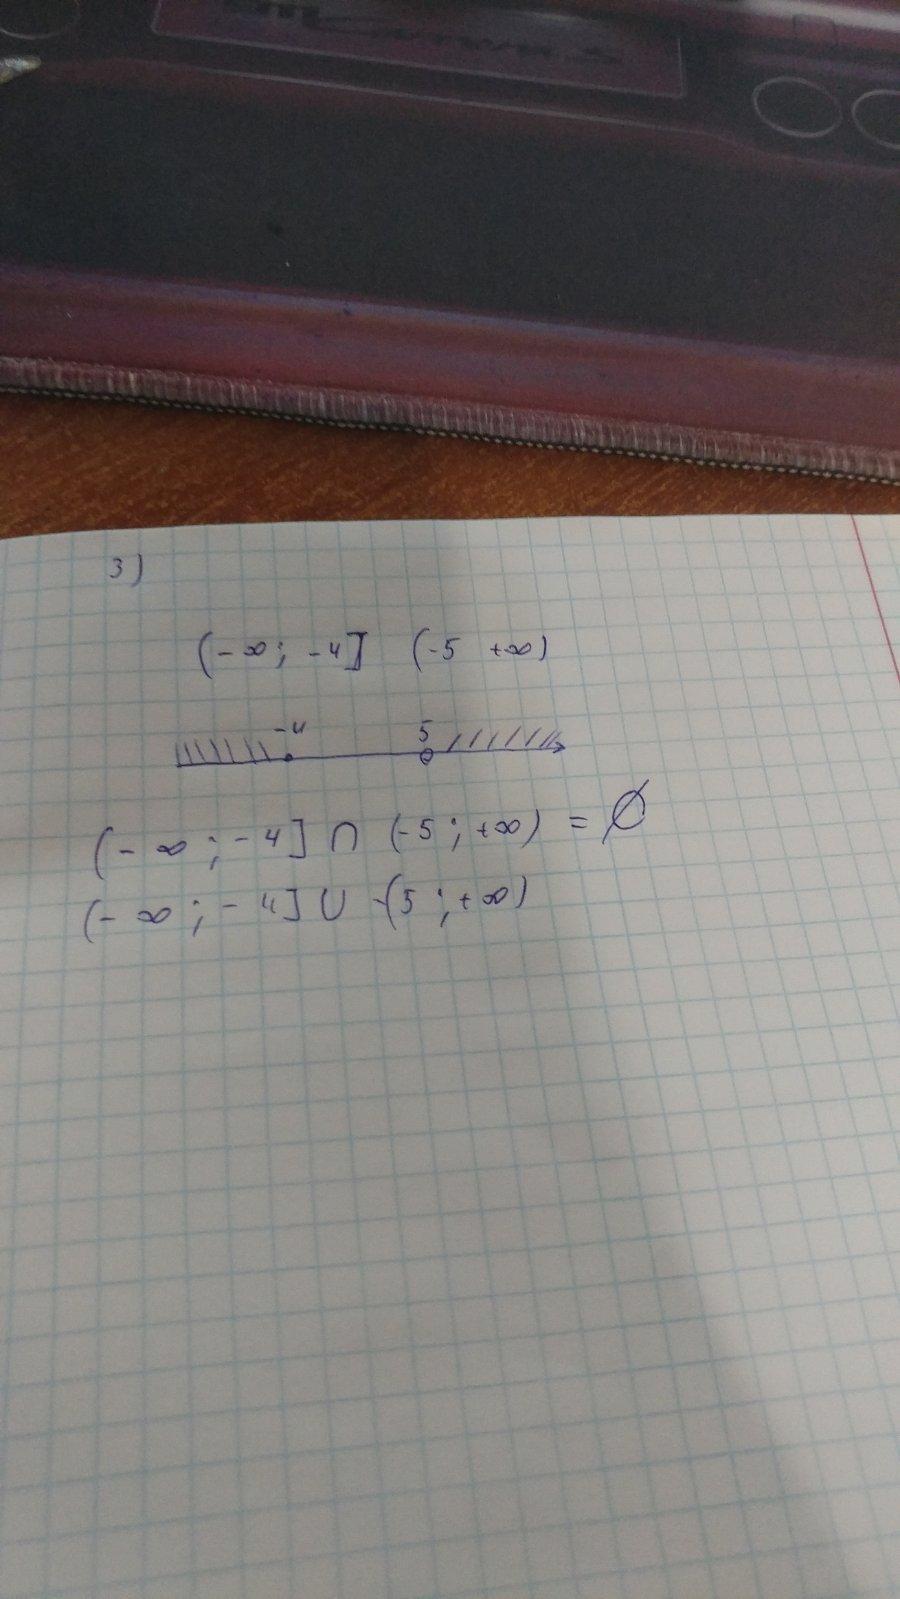 3)
(-∞; -4] (-5 +∞)
-4 5
(-∞; -4] ∩ (-5; +∞) = ∅
(-∞; -4] ∪ -(5; +∞)